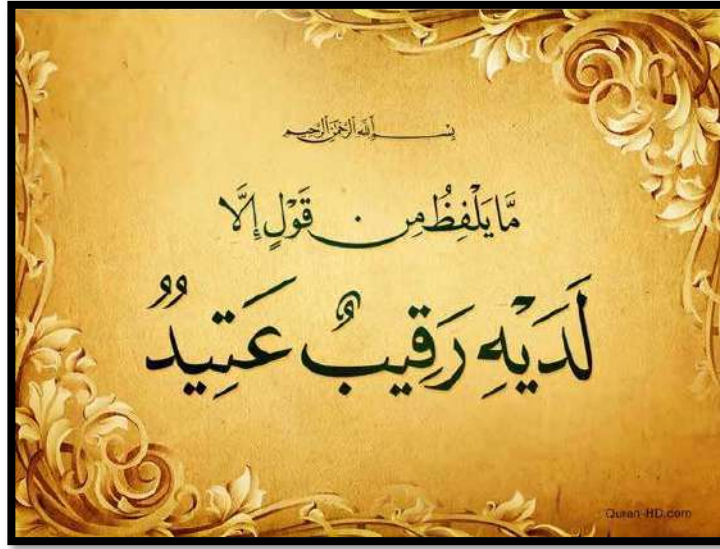 بِسْمِ اللَّهِ الرَّحْمَٰنِ الرَّحِيمِ
مَّا يَلْفِظُ مِن قَوْلٍ إِلَّا
لَدَيْهِ رَقِيبٌ عَتِيدٌ
Quran-HD.com